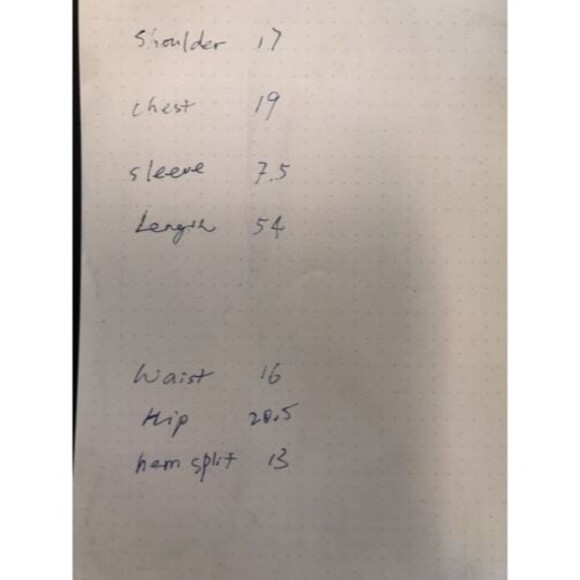 Shoulder 17
chest 19
sleeve 7.5
Length 54
Waist 16
Hip 20.5
hem split 13